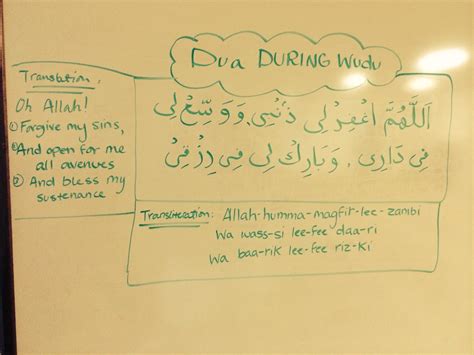 Dua DURING Wudu
Translation.
Oh Allah!
① Forgive my sins,
② And open for me
all avenues
③ And bless my
sustenance
اَللّٰهُمَّ اغْفِرْ لِى ذَنْبِى وَوَسِّعْ لِى
فِى دَارِى. وَبَارِكْ لِى فِى رِزْقِىْ
Transliteration: Allah-humma-magfir-lee-zanibi
Wa wass-si lee-fee daa-ri
Wa baa-rik lee-fee riz-ki